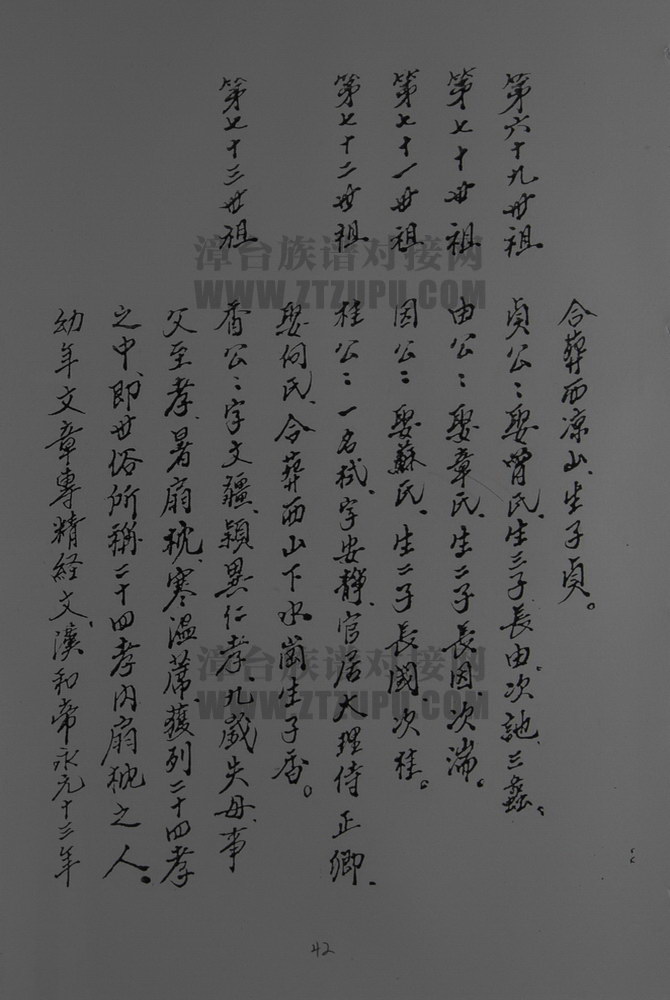 合葬西凉山、生子貞。
第六十九世祖 貞公：娶曾氏、生三子長由、次訑、三蠡、
第七十世祖 由公：娶章氏、生二子長因、次湍。
第七十一世祖 因公：娶蘇氏、生二子長國、次桂。
第七十二世祖 桂公：一名栻、字安靜、官居大理侍正卿、
娶何氏、合葬西山下水崗生子香。
第七十三世祖 香公：字文疆、穎異仁孝、九歲失母、事
父至孝、暑扇枕、寒溫蓆、獲列二十四孝
之中、即世俗所稱二十四孝內扇枕之人。
幼年文章專精经文、漢和帝永元十三年
42
漳台族谱对接网
WWW.ZTZUPU.COM
漳台族谱对接网
WWW.ZTZUPU.COM